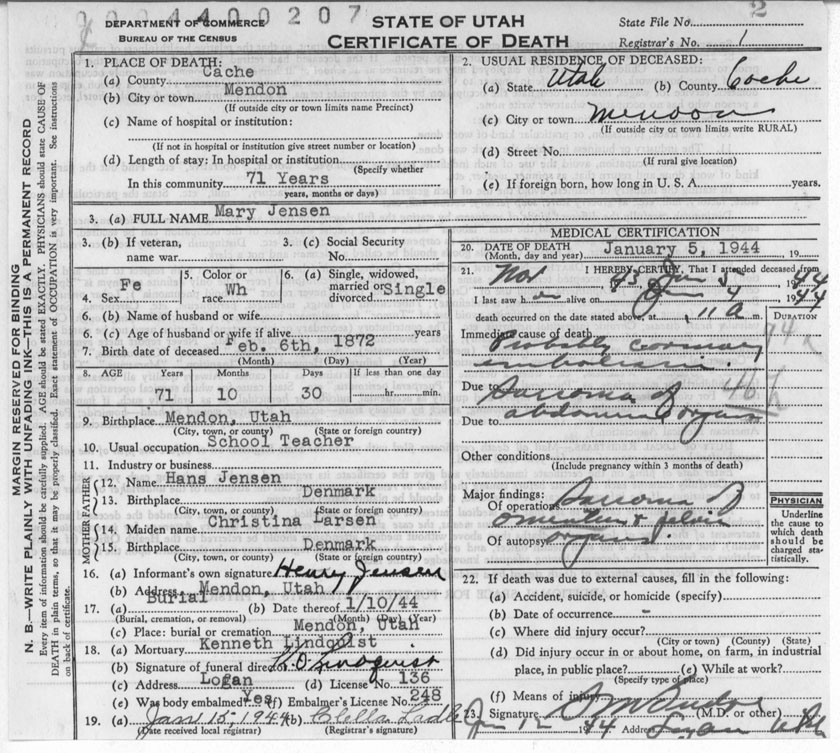 0004400207
DEPARTMENT OF COMMERCE
BUREAU OF THE CENSUS
STATE OF UTAH
CERTIFICATE OF DEATH
State File No. 2
Registrar's No. 1
MARGIN RESERVED FOR BINDING
N. B.—WRITE PLAINLY WITH UNFADING INK—THIS IS A PERMANENT RECORD
Every item of information should be carefully supplied. AGE should be stated EXACTLY. PHYSICIANS should state CAUSE OF
DEATH in plain terms, so that it may be properly classified. Exact statement of OCCUPATION is very important. See instructions
on back of certificate.
1. PLACE OF DEATH:
(a) County Cache
(b) City or town Mendon
(If outside city or town limits name Precinct)
(c) Name of hospital or institution:
(If not in hospital or institution give street number or location)
(d) Length of stay: In hospital or institution
(Specify whether
In this community 71 Years
years, months or days)
2. USUAL RESIDENCE OF DECEASED:
(a) State Utah (b) County Cache
(c) City or town Mendon
(If outside city or town limits write RURAL)
(d) Street No.
(If rural give location)
(e) If foreign born, how long in U. S. A. years.
3. (a) FULL NAME Mary Jensen
3. (b) If veteran, name war
3. (c) Social Security No.
4. Sex Fe
5. Color or race Wh
6. (a) Single, widowed, married or divorced Single
6. (b) Name of husband or wife
6. (c) Age of husband or wife if alive years
7. Birth date of deceased Feb. 6th, 1872
(Month) (Day) (Year)
8. AGE Years Months Days If less than one day
71 10 30 hr. min.
9. Birthplace Mendon, Utah
(City, town, or county) (State or foreign country)
10. Usual occupation School Teacher
11. Industry or business
FATHER
12. Name Hans Jensen
13. Birthplace Denmark
(City, town, or county) (State or foreign country)
MOTHER
14. Maiden name Christina Larsen
15. Birthplace Denmark
(City, town, or county) (State or foreign country)
16. (a) Informant's own signature Henry Jensen
(b) Address Mendon, Utah
17. (a) Burial (b) Date thereof 1/10/44
(Burial, cremation, or removal) (Month) (Day) (Year)
(c) Place: burial or cremation Mendon, Utah
18. (a) Mortuary Kenneth Lindquist
(b) Signature of funeral director K. O. Lindquist
(c) Address Logan (d) License No. 136
(e) Was body embalmed? Yes (f) Embalmer's License No. 248
19. (a) Jan 15, 1944 (b)
(Date received local registrar) (Registrar's signature)
MEDICAL CERTIFICATION
20. DATE OF DEATH January 5, 1944 19
(Month, day and year)
21. I HEREBY CERTIFY, That I attended deceased from
Nov 43 Jan 5 1944
I last saw her alive on Jan 4 1944
death occurred on the date stated above, at 11 A m.
DURATION
Immediate cause of death
Probably coronary
embolism.
Due to Sarcoma of
abdominal organs
Due to
Other conditions
(Include pregnancy within 3 months of death)
Major findings:
Of operations Sarcoma of
omentum & pelvic
Of autopsy organs.
PHYSICIAN
Underline
the cause to
which death
should be
charged sta-
tistically.
22. If death was due to external causes, fill in the following:
(a) Accident, suicide, or homicide (specify)
(b) Date of occurrence
(c) Where did injury occur?
(City or town) (County) (State)
(d) Did injury occur in or about home, on farm, in industrial
place, in public place? (e) While at work?
(Specify type of place)
(f) Means of injury
23. Signature (M.D. or other)
Jan 1944 Address Logan Utah